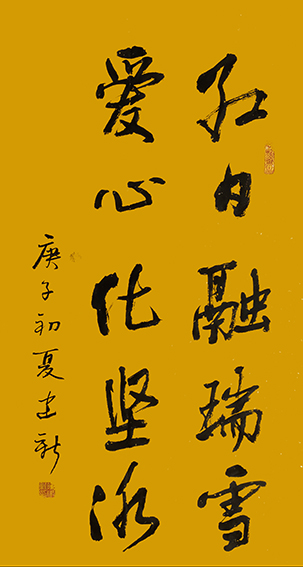 红日融瑞雪
爱心化坚冰
庚子初夏建新